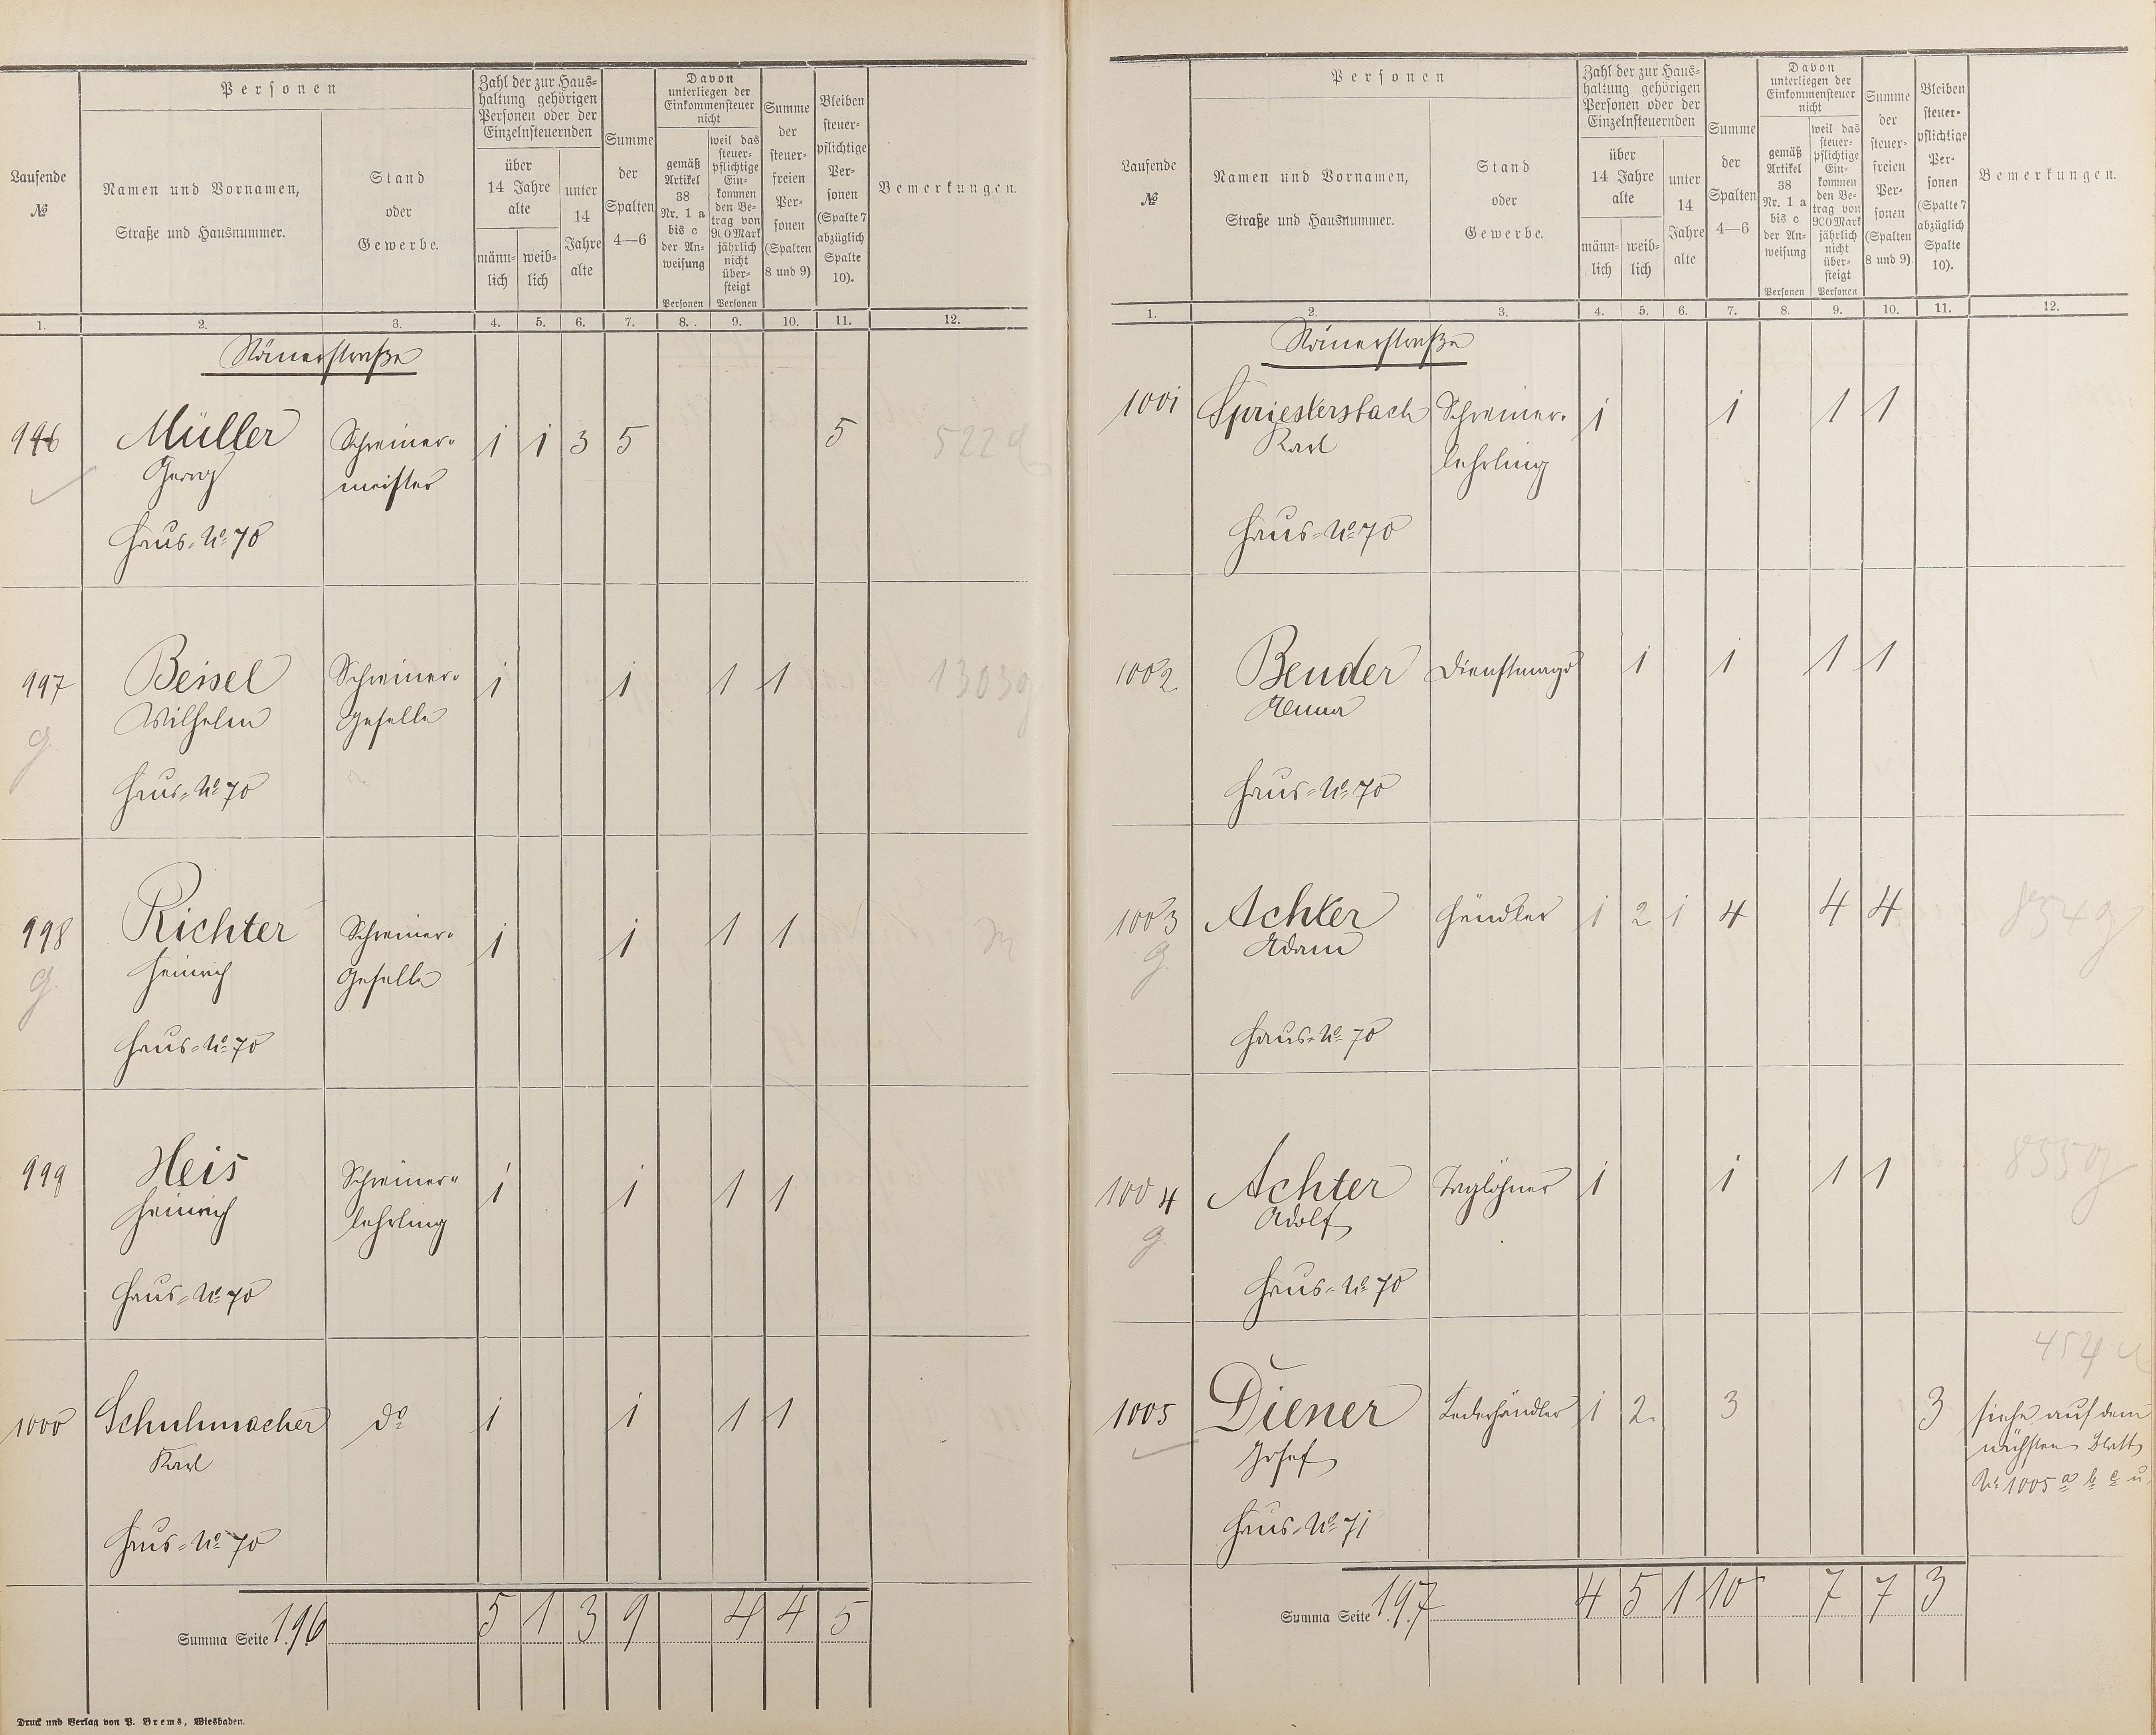 Personen
Laufende
№
Namen und Vornamen,
Straße und Hausnummer.
Stand
oder
Gewerbe.
Zahl der zur Haus-
haltung gehörigen
Personen oder der
Einzelnsteuernden
über
14 Jahre
alte
männ-
lich
weib-
lich
unter
14
Jahre
alte
Summe
der
Spalten
4—6
Davon
unterliegen der
Einkommensteuer
nicht
gemäß
Artikel
38
Nr. 1 a
bis c
der An-
weisung
Personen
weil das
steuer-
pflichtige
Ein-
kommen
den Be-
trag von
900 Mark
jährlich
nicht
über-
steigt
Personen
Summe
der
steuer-
freien
Per-
sonen
(Spalten
8 und 9)
Bleiben
steuer-
pflichtige
Per-
sonen
(Spalte 7
abzüglich
Spalte
10).
Bemerkungen.
1. 2. 3. 4. 5. 6. 7. 8. 9. 10. 11. 12.
Römerstraße
996 Müller Schreiner- 1 1 3 5 5 522
Georg meister
Haus-No 70
997 Beisel Schreiner- 1 1 1 1 1303g
Wilhelm Geselle
g
Haus-No 70
998 Richter Schreiner- 1 1 1 1
Heinrich Geselle
g
Haus-No 70
999 Heis Schreiner- 1 1 1 1
Heinrich lehrling
Haus-No 70
1000 Schuhmacher do 1 1 1 1
Karl
Haus-No 70
Summa Seite 196 5 1 3 9 4 4 5
Druck und Verlag von P. Brems, Wiesbaden.
Personen
Laufende
№
Namen und Vornamen,
Straße und Hausnummer.
Stand
oder
Gewerbe.
Zahl der zur Haus-
haltung gehörigen
Personen oder der
Einzelnsteuernden
über
14 Jahre
alte
männ-
lich
weib-
lich
unter
14
Jahre
alte
Summe
der
Spalten
4—6
Davon
unterliegen der
Einkommensteuer
nicht
gemäß
Artikel
38
Nr. 1 a
bis c
der An-
weisung
Personen
weil das
steuer-
pflichtige
Ein-
kommen
den Be-
trag von
900 Mark
jährlich
nicht
über-
steigt
Personen
Summe
der
steuer-
freien
Per-
sonen
(Spalten
8 und 9)
Bleiben
steuer-
pflichtige
Per-
sonen
(Spalte 7
abzüglich
Spalte
10).
Bemerkungen.
1. 2. 3. 4. 5. 6. 7. 8. 9. 10. 11. 12.
Römerstraße
1001 Spriestersbach Schreiner- 1 1 1 1
Karl lehrling
Haus-No 70
1002 Bender Dienstmagd 1 1 1 1
Anna
Haus-No 70
1003 Achter Händler 1 2 1 4 4 4 854g
g Adam
Haus-No 70
1004 Achter Taglöhner 1 1 1 1 855g
Adolf
g
Haus-No 70
1005 Diener Lederhändler 1 2 3 3 siehe auf dem
Josef nächsten Blatt
No 1005 a b c u.
Haus-No 71
Summa Seite 197 4 5 1 10 7 7 3